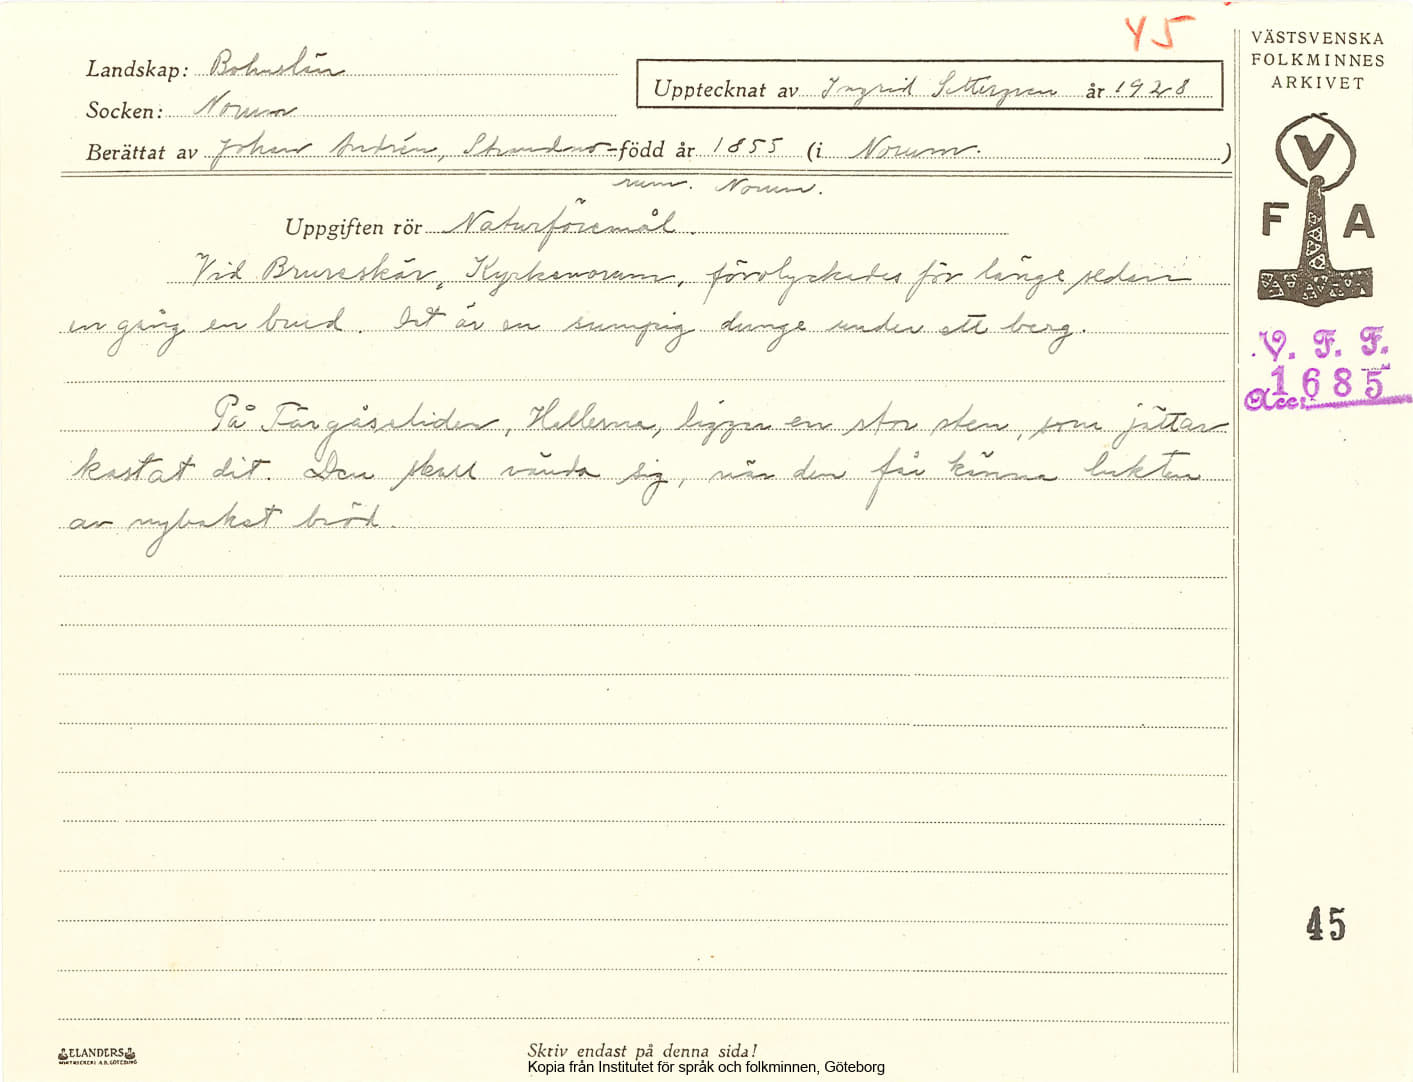 Y5
VÄSTSVENSKA
FOLKMINNES
ARKIVET
Landskap: Bohuslän
Upptecknat av Ingrid Settergren år 1928
Socken: Norum
Berättat av Johan Andrén, Strandno- född år 1855 (i Norum. )
rum. Norum.
V
F A
Uppgiften rör Naturföremål.
Vid Brureskär, Kyrkenorum, förolyckades för länge sedan
en gång en brud. Det är en sumpig dunge under ett berg.
V. F. F.
Acc. 1685
På Färgåseliden, Hallerna, ligger en stor sten, som jättar
kastat dit. Den skall vända sig, när den får känna lukten
av nybakat bröd.
45
ELANDERS
BOKTRYCKERI A.B. GÖTEBORG
Skriv endast på denna sida!
Kopia från Institutet för språk och folkminnen, Göteborg